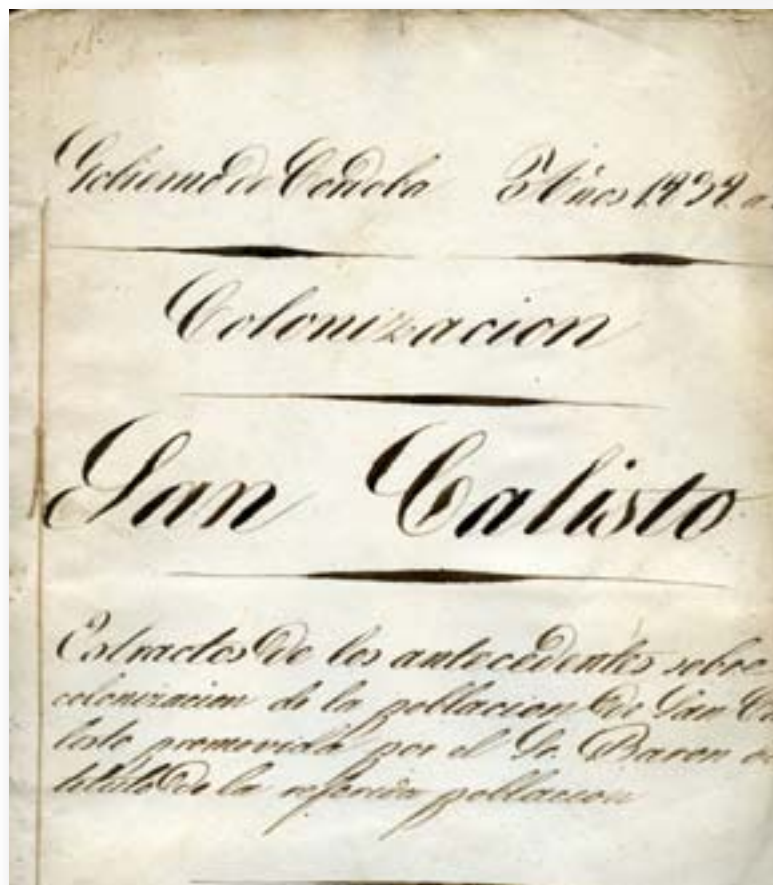 Gobierno de Cordoba Años 1838 a
Colonizacion
San Calisto
Estractos de los antecedentes sobre
colonizacion de la poblacion de San Ca
listo promovida por el Sr. Baron
titulo de la referida poblacion